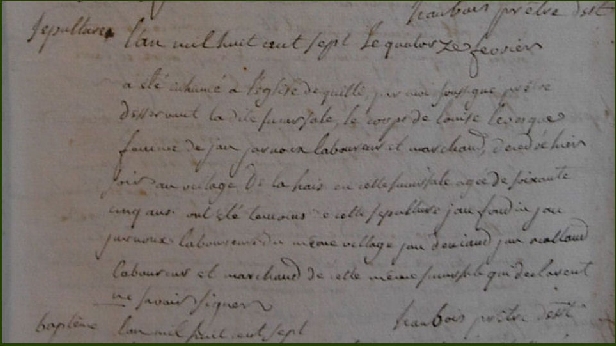 prêtre dest
sepulture l'an mil huit cent sept le quatorze fevrier
a été inhumé à l'église de quillé, par moi soussigné prêtre
desservant la dite succursale, le corps de louise levesque
femme de jan jarnoux laboureur et marchand, décédée hier
soir au village de la hais en cette succursale agée de soixante
cinq ans ont été temoins de cette sepulture jan jan
jarnoux laboureurs du même village jan jan
laboureur et marchand de cette même succursale qui declarent
ne savoir signer
prêtre dest
baptême l'an mil huit cent sept